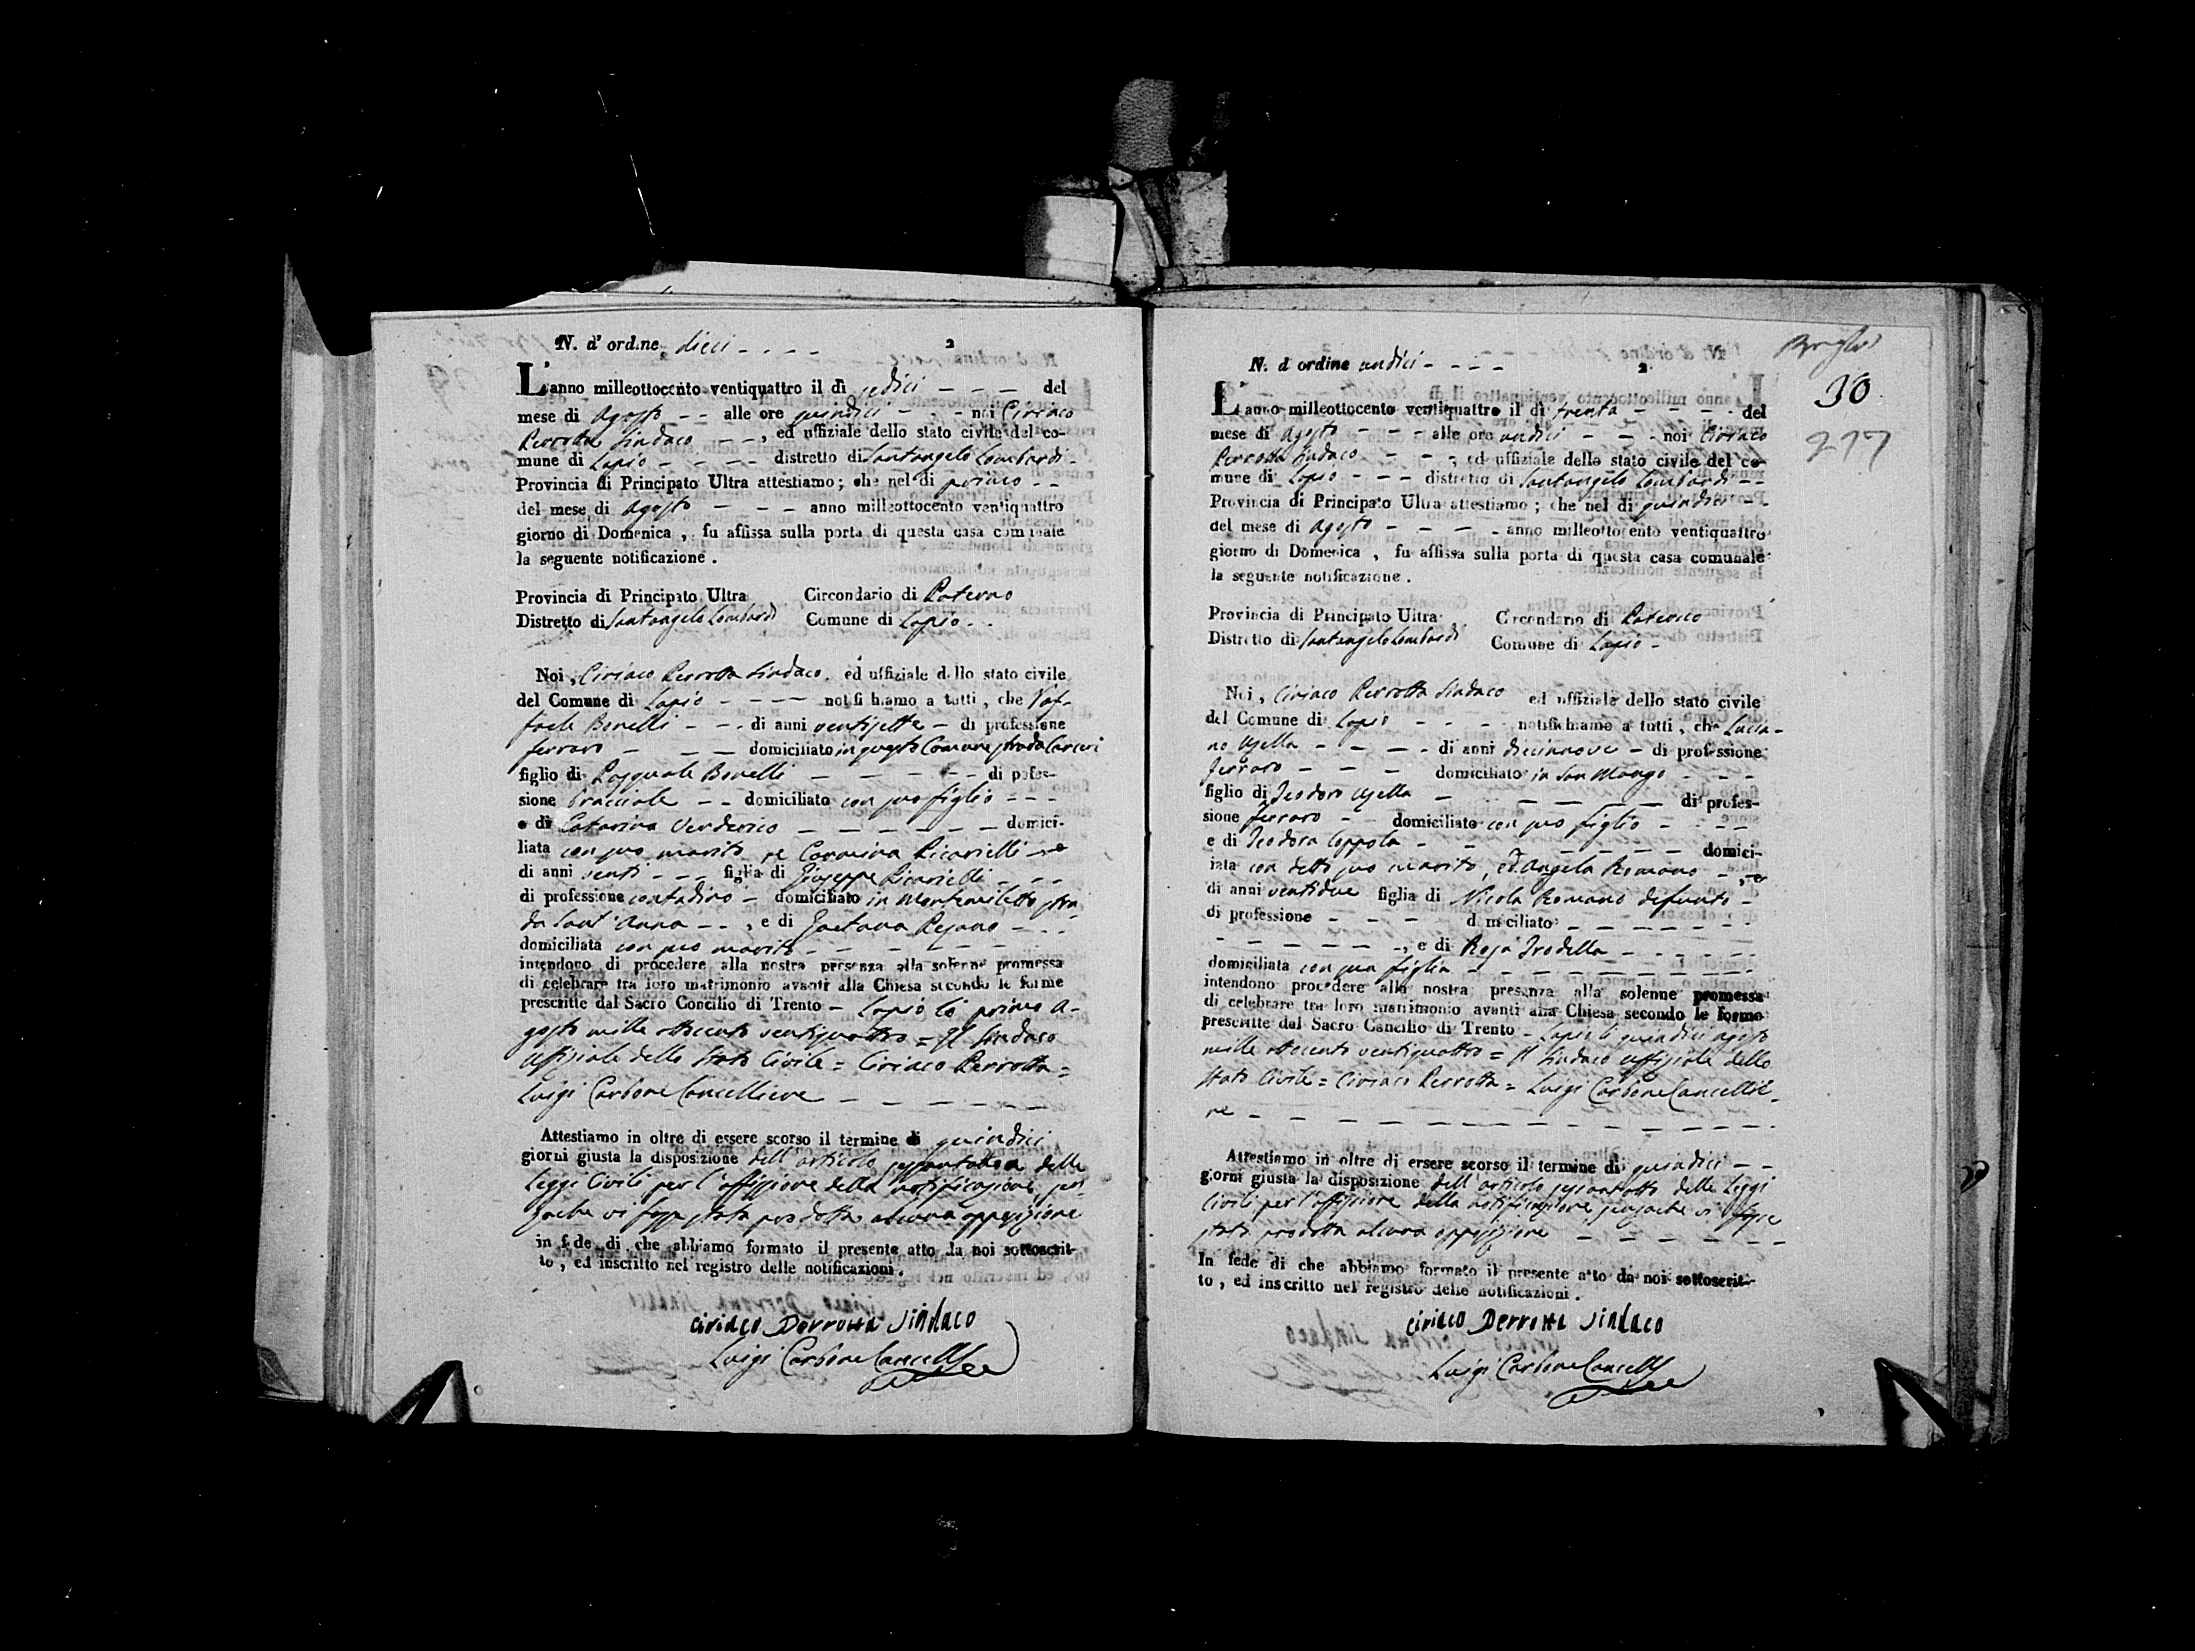 N. d'ordine dieci - - - - 2
L'anno milleottocento ventiquattro il dì sedici - - - del
mese di Agosto - - alle ore quindici - - - noi Ciriaco
Perrotta Sindaco - - , ed uffiziale dello stato civile del co-
mune di Lapio - - - - distretto di Santangelo Lombardi -
Provincia di Principato Ultra attestiamo; che nel dì primo - -
del mese di Agosto - - - anno milleottocento ventiquattro
giorno di Domenica , fu affissa sulla porta di questa casa comunale
la seguente notificazione .
Provincia di Principato Ultra Circondario di Paterno
Distretto di Santangelo Lombardi Comune di Lapio - -
Noi , Ciriaco Perrotta Sindaco , ed uffiziale dello stato civile
del Comune di Lapio - - - - notifichiamo a tutti , che Raf-
faele Bonelli - - - di anni ventisette - di professione
ferraro - - - domiciliato in questo Comune strada Carceri
figlio di Pasquale Bonelli - - - - - - di profes-
sione bracciale - - domiciliato con suo figlio - - -
e di Catarina Verderico - - - - - - domici-
liata con suo marito , e Carmina Picarielli - e
di anni venti - - - figlia di Giuseppe Picarielli - - -
di professione contadino - domiciliato in Montemiletto stra-
da Sant'Anna - - , e di Gaetana Pejano - - -
domiciliata con suo marito - - - - - -
intendono di procedere alla nostra presenza alla solenne promessa
di celebrare tra loro matrimonio avanti alla Chiesa secondo le forme
prescritte dal Sacro Concilio di Trento - Lapio lì primo A-
gosto mille ottocento ventiquattro = Il Sindaco
uffiziale dello Stato Civile = Ciriaco Perrotta =
Luigi Carbone Cancelliere - - - - - -
Attestiamo in oltre di essere scorso il termine di quindici
giorni giusta la disposizione dell'articolo sessantotto delle
Leggi Civili per l'affissione della notificazione, sen-
zache vi fosse stata prodotta alcuna opposizione
in fede di che abbiamo formato il presente atto da noi sottoscrit-
to , ed inscritto nel registro delle notificazioni .
Ciriaco Perrotta Sindaco
Luigi Carbone Cancell.
30
217
N. d'ordine undici - - - - 2
L'anno milleottocento ventiquattro il dì trenta - - - - del
mese di Agosto - - - alle ore undici - - - noi Ciriaco
Perrotta Sindaco - - - , ed uffiziale dello stato civile del co-
mune di Lapio - - - distretto di Santangelo Lombardi - -
Provincia di Principato Ultra attestiamo ; che nel dì quindici - -
del mese di Agosto - - - - anno milleottocento ventiquattro
giorno di Domenica , fu affissa sulla porta di questa casa comunale
la seguente notificazione .
Provincia di Principato Ultra Circondario di Paterno
Distretto di Santangelo Lombardi Comune di Lapio -
Noi , Ciriaco Perrotta Sindaco ed uffiziale dello stato civile
del Comune di Lapio - - - - notifichiamo a tutti , che Lucia-
no Uzella - - - - di anni diecinnove - di professione
ferraro - - - domiciliato in San Mango - - -
figlio di Teodoro Uzella - - - - - - di profes-
sione ferraro - - domiciliato con suo figlio - - - -
e di Teodora Coppola - - - - - - domici-
liata con detto suo marito , ed Angela Romano - , e
di anni ventidue figlia di Nicola Romano defunto -
di professione - - - domiciliato - - - - - -
- - - - - - , e di Rosa Trodella - - - - -
domiciliata con sua figlia - - - - - - - - -
intendono procedere alla nostra presenza alla solenne promessa
di celebrare tra loro matrimonio avanti alla Chiesa secondo le forme
prescritte dal Sacro Concilio di Trento - Lapio lì quindici agosto
mille ottocento ventiquattro = Il Sindaco uffiziale dello
Stato Civile = Ciriaco Perrotta = Luigi Carbone Cancellie-
re - - - - - - - - - - - - -
Attestiamo in oltre di essere scorso il termine di quindici - -
giorni giusta la disposizione dell'articolo sessantotto delle Leggi
Civili per l'affissione della notificazione senzache vi fosse
stata prodotta alcuna opposizione - - - - - -
In fede di che abbiamo formato il presente atto da noi sottoscrit-
to , ed inscritto nel registro delle notificazioni .
Ciriaco Perrotta Sindaco
Luigi Carbone Cancell.